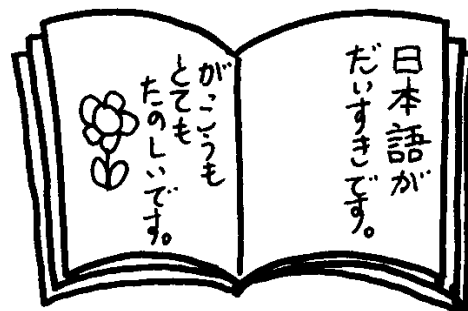 日本語が
だいすきです。
がっこうも
とても
たのしいです。